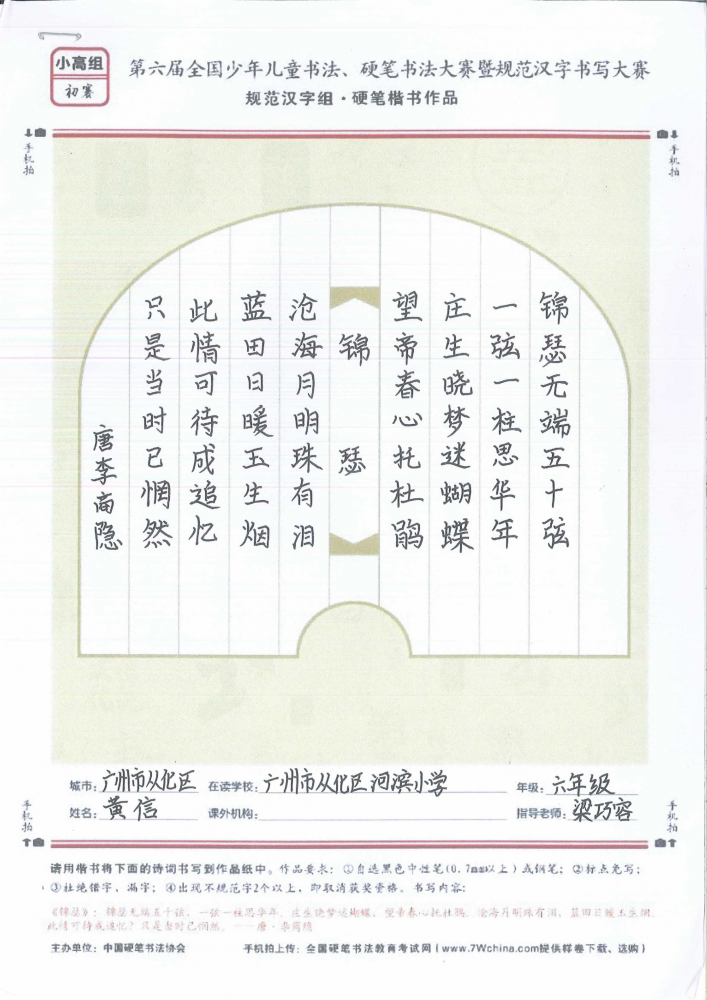 小高组
初赛
第六届全国少年儿童书法、硬笔书法大赛暨规范汉字书写大赛
规范汉字组·硬笔楷书作品
手机拍
手机拍
锦瑟无端五十弦
一弦一柱思华年
庄生晓梦迷蝴蝶
望帝春心托杜鹃
锦瑟
沧海月明珠有泪
蓝田日暖玉生烟
此情可待成追忆
只是当时已惘然
唐李商隐
手机拍
手机拍
城市:广州市从化区 在读学校:广州市从化区河滨小学 年级:六年级
姓名:黄信 课外机构: 指导老师:梁巧容
请用楷书将下面的诗词书写到作品纸中。作品要求:①自选黑色中性笔(0.7mm以上)或钢笔;②标点免写;
③杜绝错字、漏字;④出现不规范字2个以上,即取消获奖资格。书写内容:
《锦瑟》:锦瑟无端五十弦,一弦一柱思华年。庄生晓梦迷蝴蝶,望帝春心托杜鹃。沧海月明珠有泪,蓝田日暖玉生烟。
此情可待成追忆?只是当时已惘然。——唐·李商隐
主办单位:中国硬笔书法协会 手机拍上传:全国硬笔书法教育考试网(www.7Wchina.com提供样卷下载、选购)